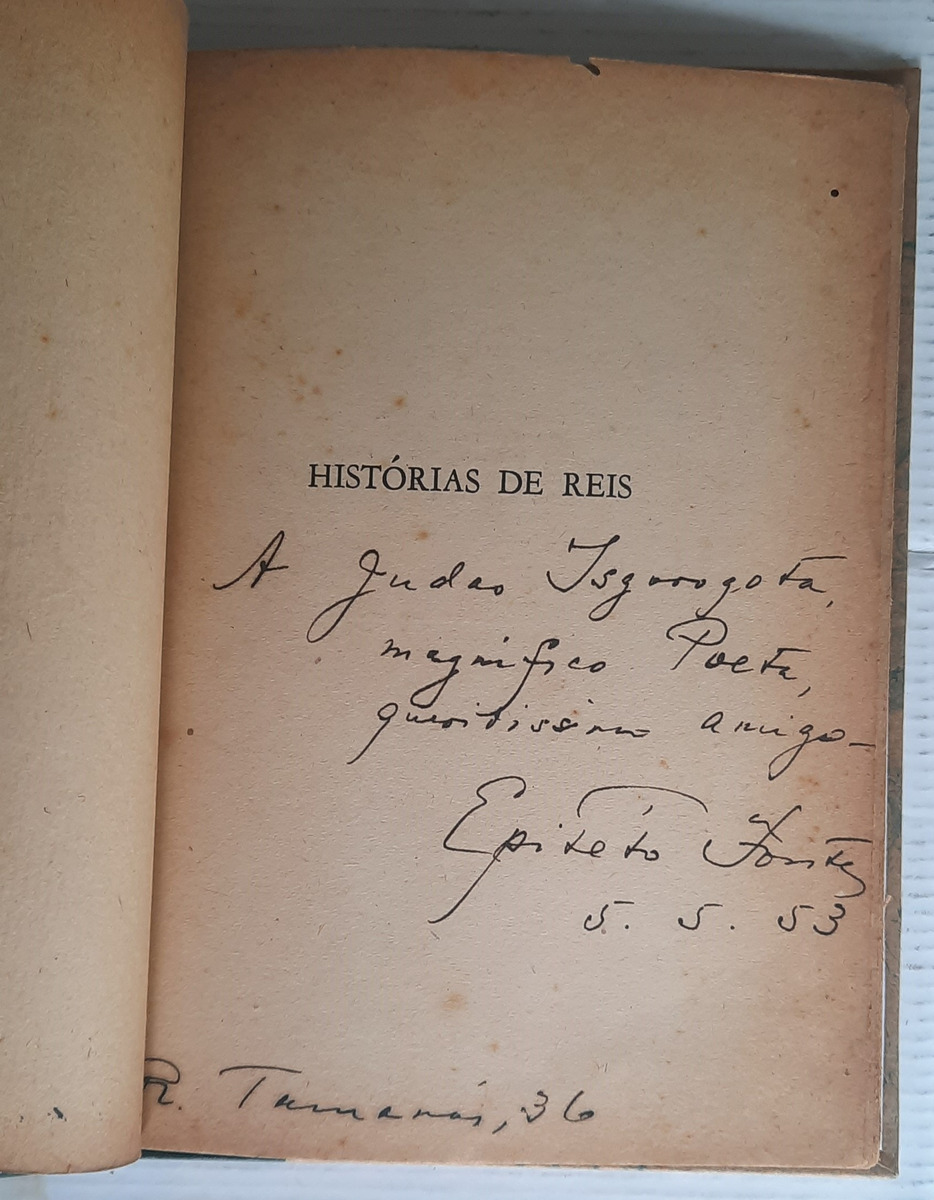 HISTÓRIAS DE REIS
A Judas Isgorogota,
magnífico Poeta,
queridissimo amigo—
Epitéto Fontes
5. 5. 53
R. Tamanás, 36